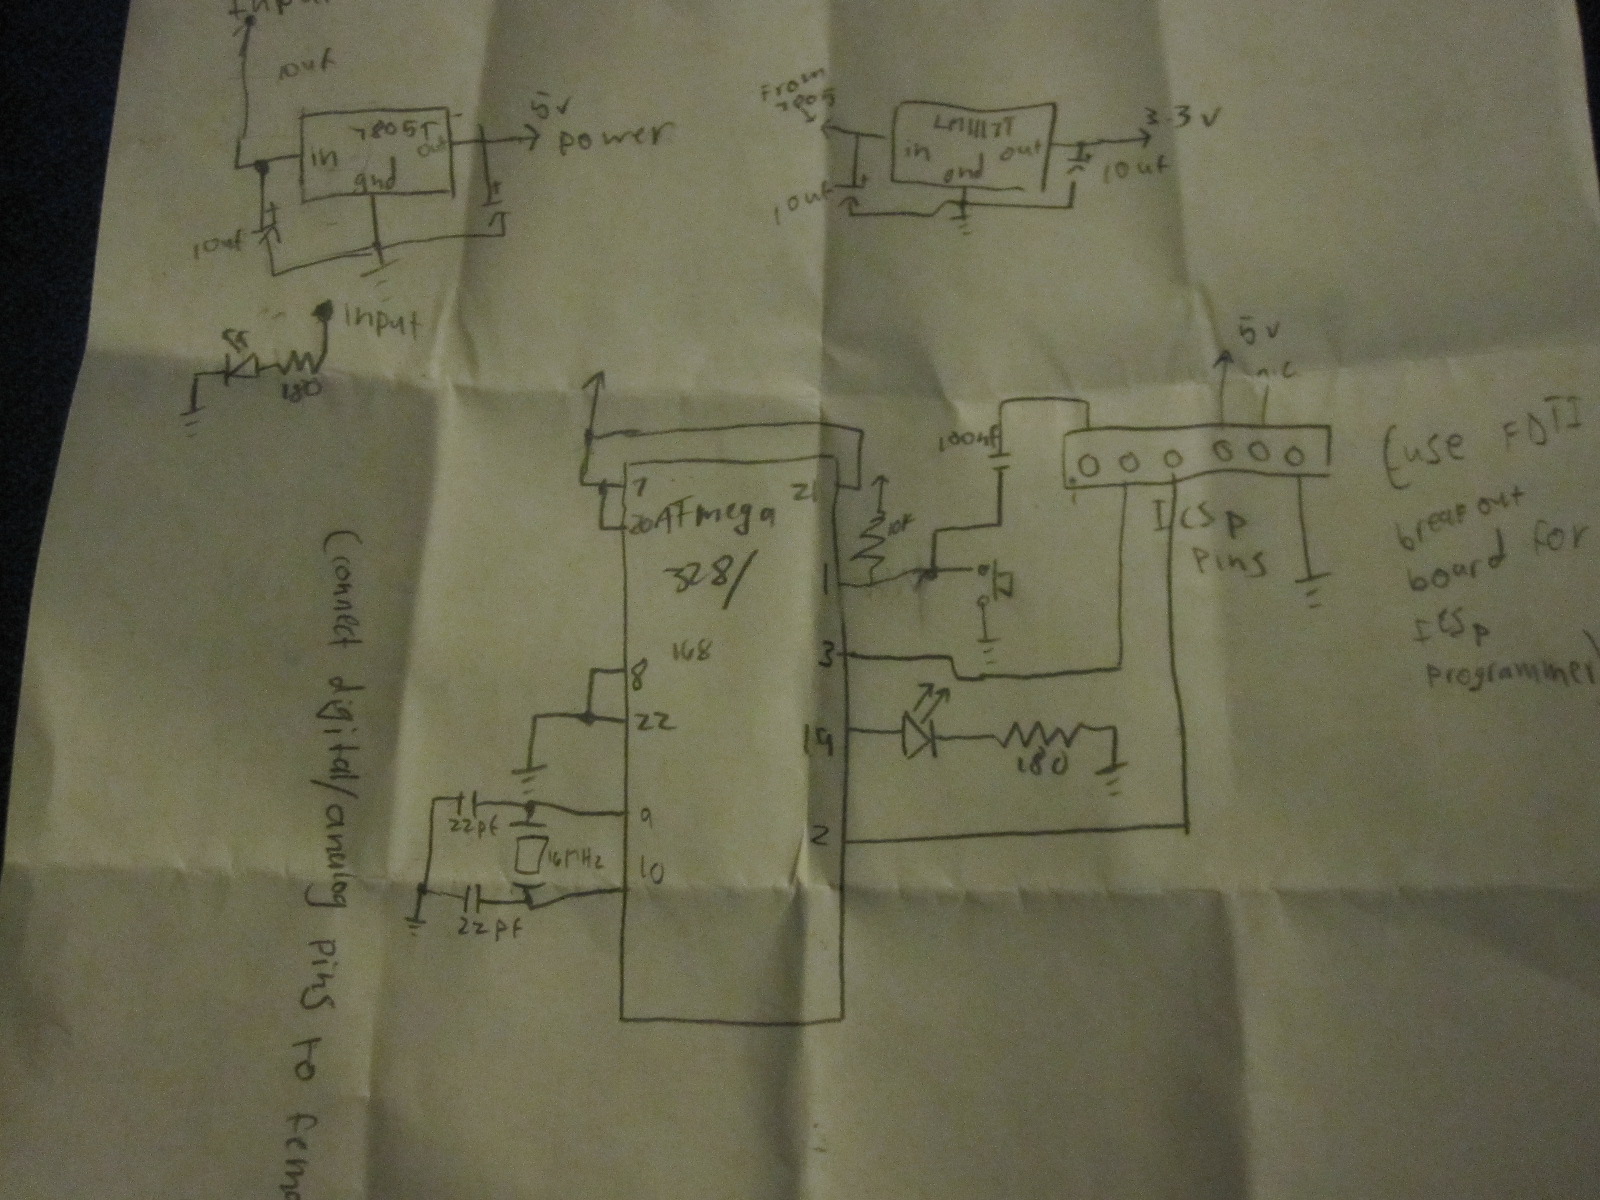 Input
10uf
7805T
in
out
gnd
5v
power
10uf
From
7805
LM1117T
in
out
gnd
3.3v
10uf
10uf
input
180
5v
n.c
100nf
(use FDTI
breakout
board for
ICSP
programmer)
ICSP
pins
7
21
20
ATmega
328/
168
10k
1
8
3
22
19
180
9
2
22pf
16MHz
10
22pf
(connect digital/analog pins to fema